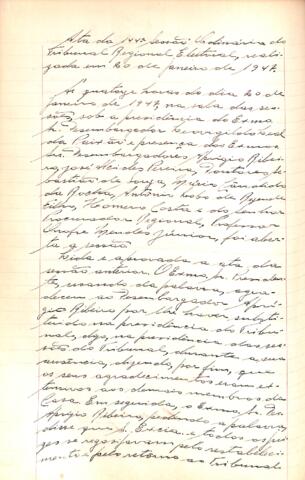 Ata da 144ª Sessão Ordinária do
Tribunal Regional Eleitoral, reali-
zada em 20 de janeiro de 1947.
Às quatorze horas do dia 20 de
janeiro de 1947, na sala das ses-
sões, sob a presidência do Exmo
Sr. Desembargador Leal
da Paixão e presença dos Exmos
Srs. Desembargadores Aprígio Ribei-
ro, José Alcides Pereira,
de Souza, Márcio
da Rocha, Antônio
Homero Costa e do Senhor
Procurador Regional, Professor
Onofre Mendes Júnior, foi aber-
ta a sessão.
Lida e aprovada a ata da
sessão anterior. O Exmo. Sr. Presiden-
te, usando da palavra, agra-
deceu ao Desembargador Aprí-
gio Ribeiro por lhe haver substi-
tuído na presidência do Tribu-
nal, digo, na presidência das ses-
sões do Tribunal, durante a sua
ausência, dizendo, por fim, que
os seus agradecimentos eram ex-
tensivos aos demais membros da
Casa. Em seguida, o Exmo. Sr. Des.
Aprígio Ribeiro, pedindo a palavra,
disse que S. Excia. e todos os juí-
zes se regosijavam pelo restabeleci-
mento e pelo retorno ao Tribunal